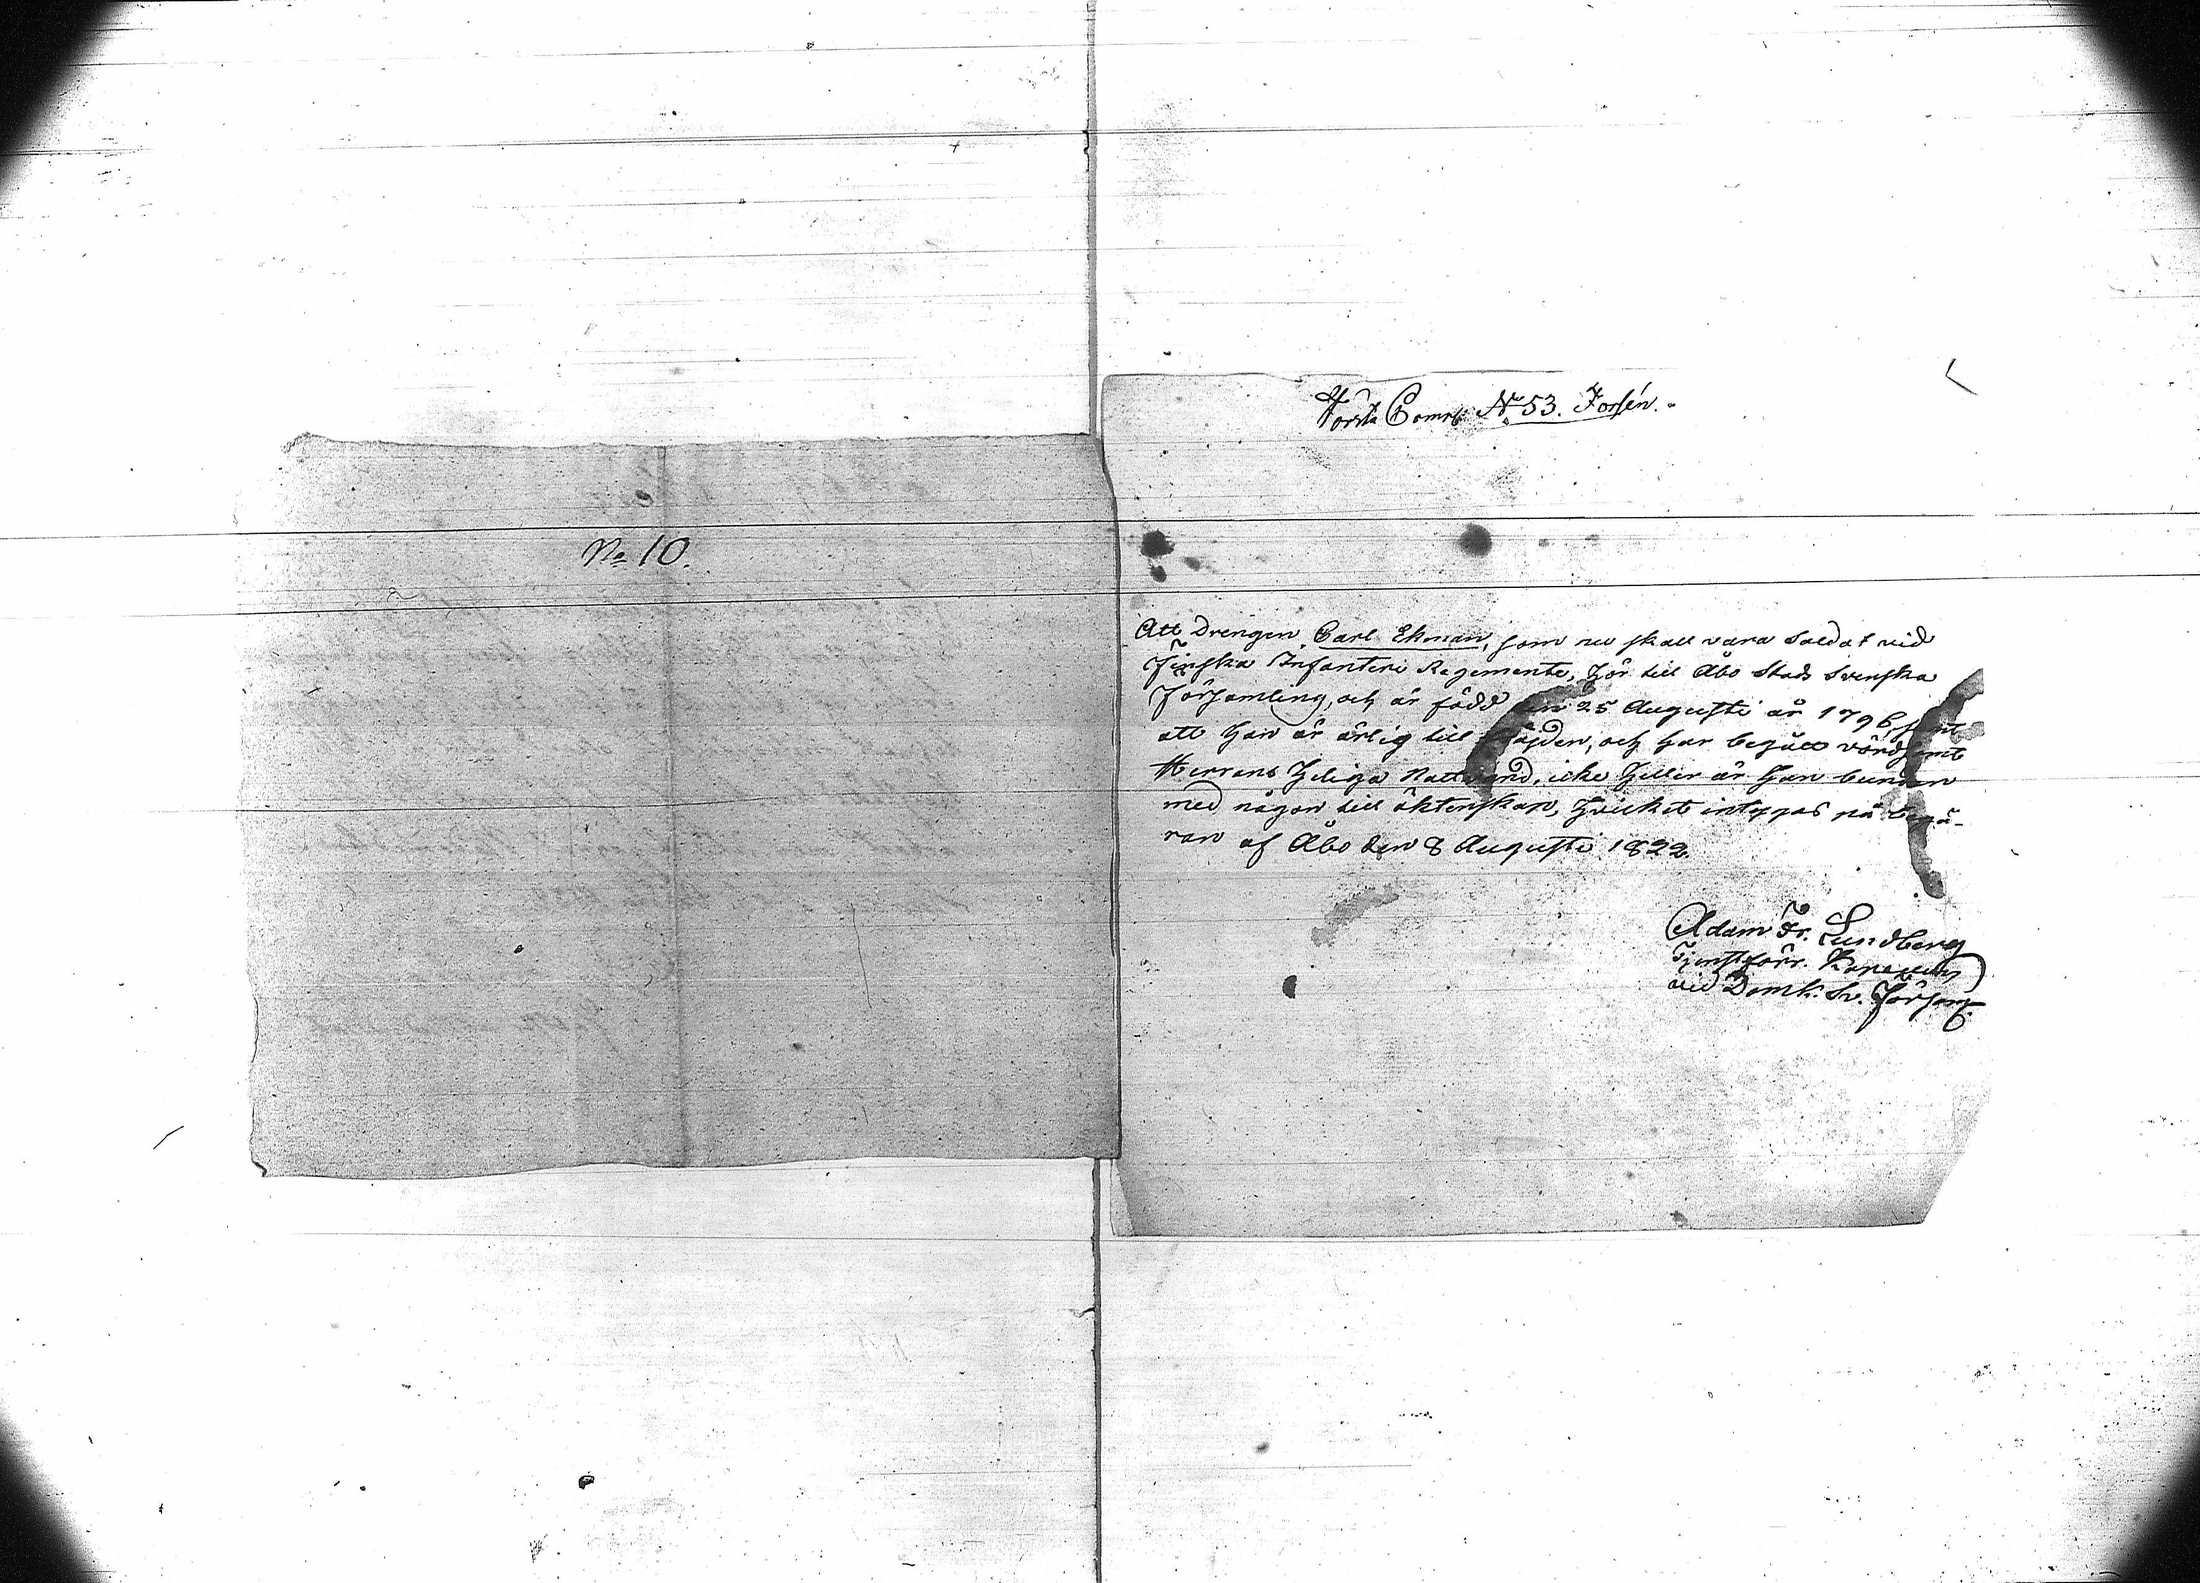 No 10.
Första Comp: No 53. Forsén.
Att Drengen Carl Ekman, som nu skall vara Soldat vid
Finska Infanteri Regemente, hör till Åbo Stads Svenska
Församling, och är född den 25 Augusti år 1796, samt
att han är ärlig till frägden, och har begått vördsamt
Herrans Heliga Nattvard, icke heller är han bunden
med någon till äktenskap, hvilket intygas på begä-
ran af Åbo den 8 Augusti 1822.
Adam Fr. Lundberg
Tjenstförr. Kapellan
vid Domk. Sv. Förs.